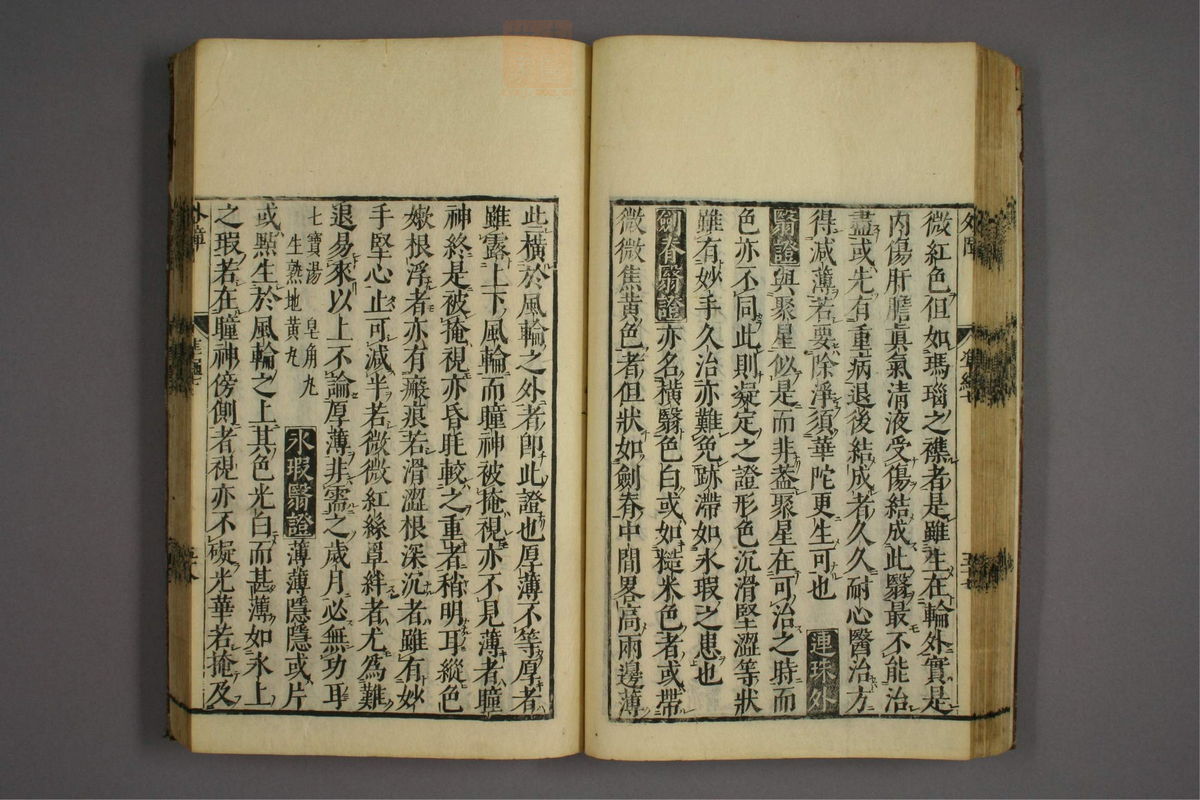 微紅色但如瑪瑙之襍者是雖生在輪外實是
内傷肝膽眞氣清液受傷結成此翳最不能治
盡或先有重病退後結成者久久耐心醫治方
得減薄若要除淨須華陀更生可也 連珠外
翳證與聚星似是而非葢聚星在可治之時而
色亦不同此則凝定之證形色沉滑堅澀等狀
雖有妙手久治亦難免跡滯如氷瑕之患也
劍脊翳證亦名橫翳色白或如糙米色者或帶
微微焦黄色者但狀如劍脊中間畧高兩邊薄
此橫於風輪之外者卽此證也厚薄不等厚者
雖露上下風輪而瞳神被掩視亦不見薄者瞳
神終是被掩視亦昏眊較之重者稍明耳縱色
嫩根浮者亦有瘢痕若滑澀根深沉者雖有妙
手堅心止可減半若微微紅絲罩絆者尤爲難
退易來以上不論厚薄非需之歲月必無功耳
七寶湯 皂角丸
生熟地黄丸
氷瑕翳證薄薄隱隱或片
或點生於風輪之上其色光白而甚薄如氷上
之瑕若在瞳神傍側者視亦不礙光華若掩及